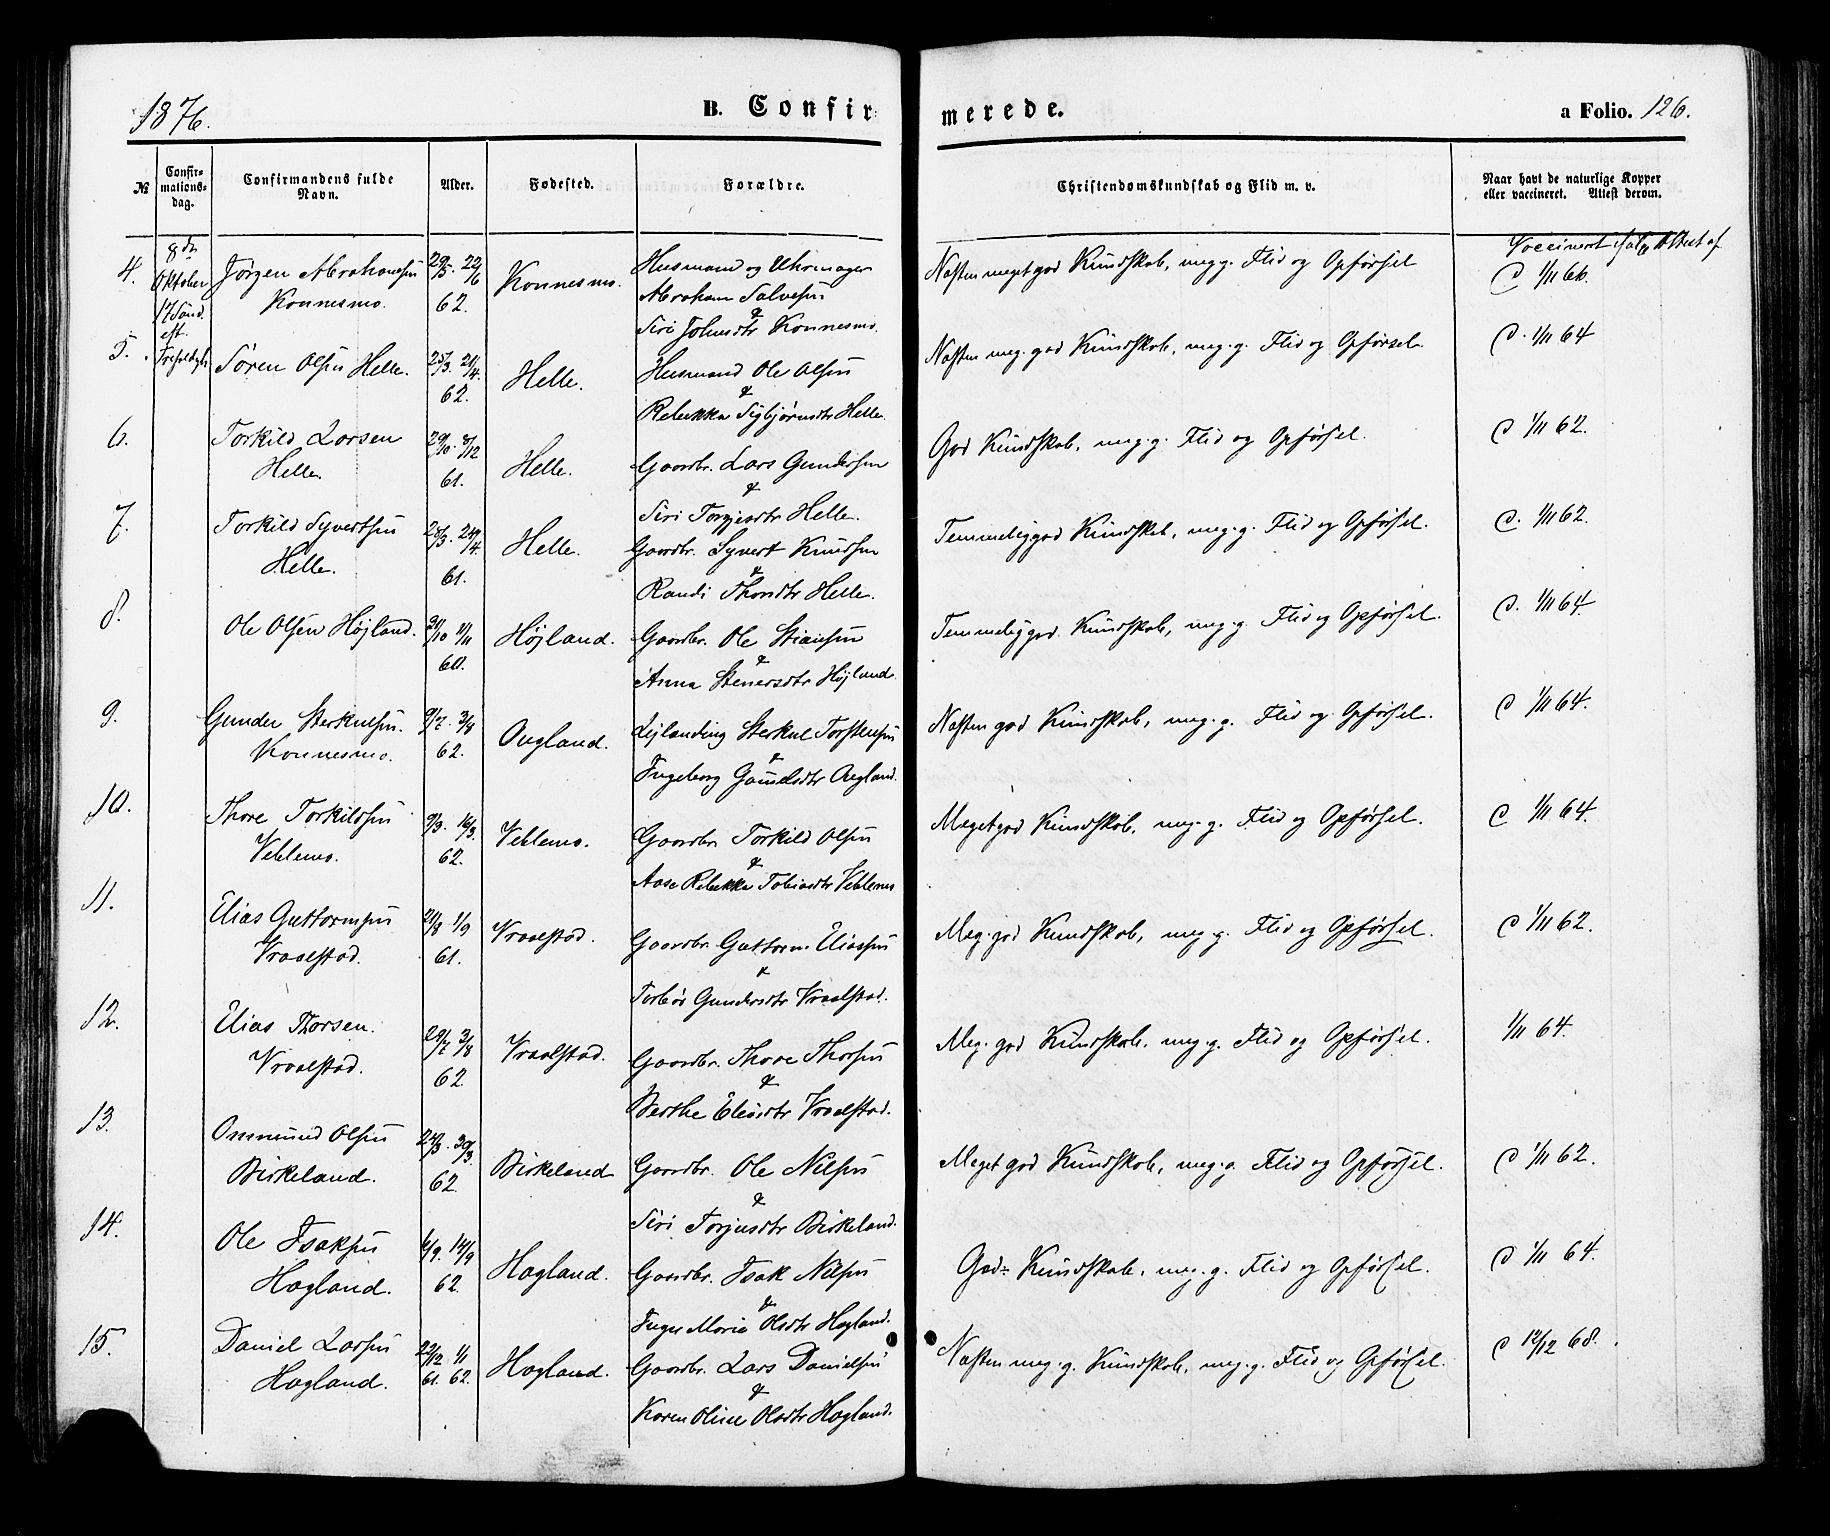 1876.
B. Confirmerede.
a Folio. 126.
№
Confirmationsdag.
Confirmandens fulde Navn.
Alder.
Fødested.
Forældre.
Christendomskundskab og Flid m. v.
Naar havt de naturlige Kopper eller vaccineret. Attest derom.
8de Oktober 17 Sønd. eft. Trefoldigh.
Vaccineret ifølge Attest af
4. Jørgen Abrahamsen 29/5. 22/6 Konnesmo. Husmand og Uhrmager Næsten meget god Kundskab, meg. g. Flid og Opførsel
Konnesmo. 62. Abraham Salvesen
& Siri Johnsdtr Konnesmo.
5. Søren Olsen Helle. 25/3. 21/4. Helle. Husmand Ole Olsen Næsten meg. god Kundskab, meg. g. Flid og Opførsel. C. 1/11 64
62. & Rebekka Sigbjørnsdtr Helle.
6. Torkild Larsen 29/10. 8/12 Helle. Gaardbr. Lars Gundersen God Kundskab, meg. g. Flid og Opførsel. C 1/11 62.
Helle. 61. & Siri Torgjesdtr Helle.
7. Torkild Syvertsen 24/4 Helle. Gaardbr. Syvert Knudsen Temmelig god Kundskab, meg. g. Flid og Opførsel. C. 1/11 62.
Helle. 61. & Randi Thorsdtr Helle.
8. Ole Olsen Højland. Højland. Gaardbr. Ole Stiansen Temmelig god Kundskab, meg. g. Flid og Opførsel. C. 1/11 64.
60. & Anna Stenersdtr Højland.
9. Gunder Sterkulsen. 9/7. 3/8 Ougland. Lejlending Sterkul Torstensen Næsten god Kundskab, meg. g. Flid og Opførsel. C 1/11 64.
Konnesmo. 62. & Ingeborg Gamelsdtr Ougland.
10. Thore Torkildsen 9/3. 16/3. Veblemo. Gaardbr Torkild Olsen Meget god Kundskab, meg. g. Flid og Opførsel. C 1/11 64.
Veblemo. 62. & Aase Rebekka Tobiasdtr Veblemo
11. Elias Guttormsen 21/8 1/9 Vraalstad. Gaardbr. Guttorm Eliassen Meg. god Kundskab, meg. g. Flid og Opførsel. C 1/11 62.
Vraalstad. 61. & Torbør Gundersdtr Vraalstad.
12. Elias Thorsen. 29/7 3/8 Vraalstad. Gaardbr. Thore Thorsen Meg. god Kundskab, meg. g. Flid og Opførsel. 1/11 64.
Vraalstad. 62 & Berthe Eliasdtr Vraalstad.
13. Ommund Olsen 24/3. 30/3. Birkeland Gaardbr. Ole Nilsen Meget god Kundskab, meg. g. Flid og Opførsel. C 1/11 62.
Birkeland. 62 & Siri Torjusdtr Birkeland.
14. Ole Isaksen 6/9. 14/9 Hagland. Gaardbr. Isak Nilsen God Kundskab, meg. g. Flid og Opførsel. C 1/11 64.
Hagland. 62. & Inger Marie Olsdtr Hagland.
15. Daniel Larsen 29/12 1/1 Hagland. Gaardbr. Lars Danielsen Næsten meg. g. Kundskab, meg. g. Flid og Opførsel. C 12/12 68.
Hagland. 61. 62. & Karen Oline Olsdtr Hagland.